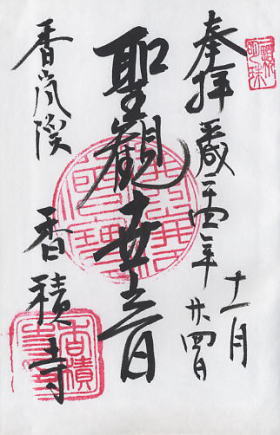 奉拝 平成二十四年
十一月
廿四日
聖観世音
香嵐渓 香積寺